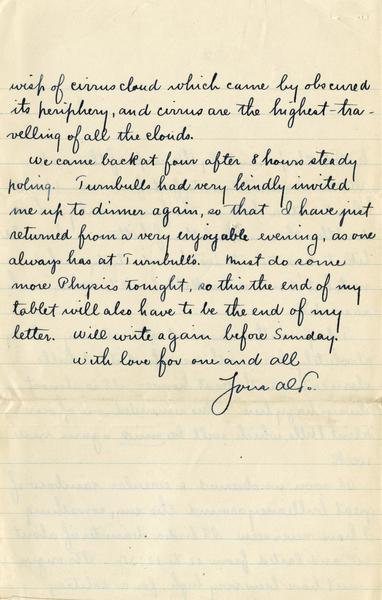 wisp of cirrus cloud which came by obscured
its periphery, and cirrus are the highest-tra-
velling of all the clouds.
We came back at four after 8 hours steady
poling. Turnbulls had very kindly invited
me up to dinner again, so that I have just
returned from a very enjoyable evening, as one
always has at Turnbull's. Must do some
more Physics tonight, so this the end of my
tablet will also have to be the end of my
letter. Will write again before Sunday.
With love for one and all
Your Alf.